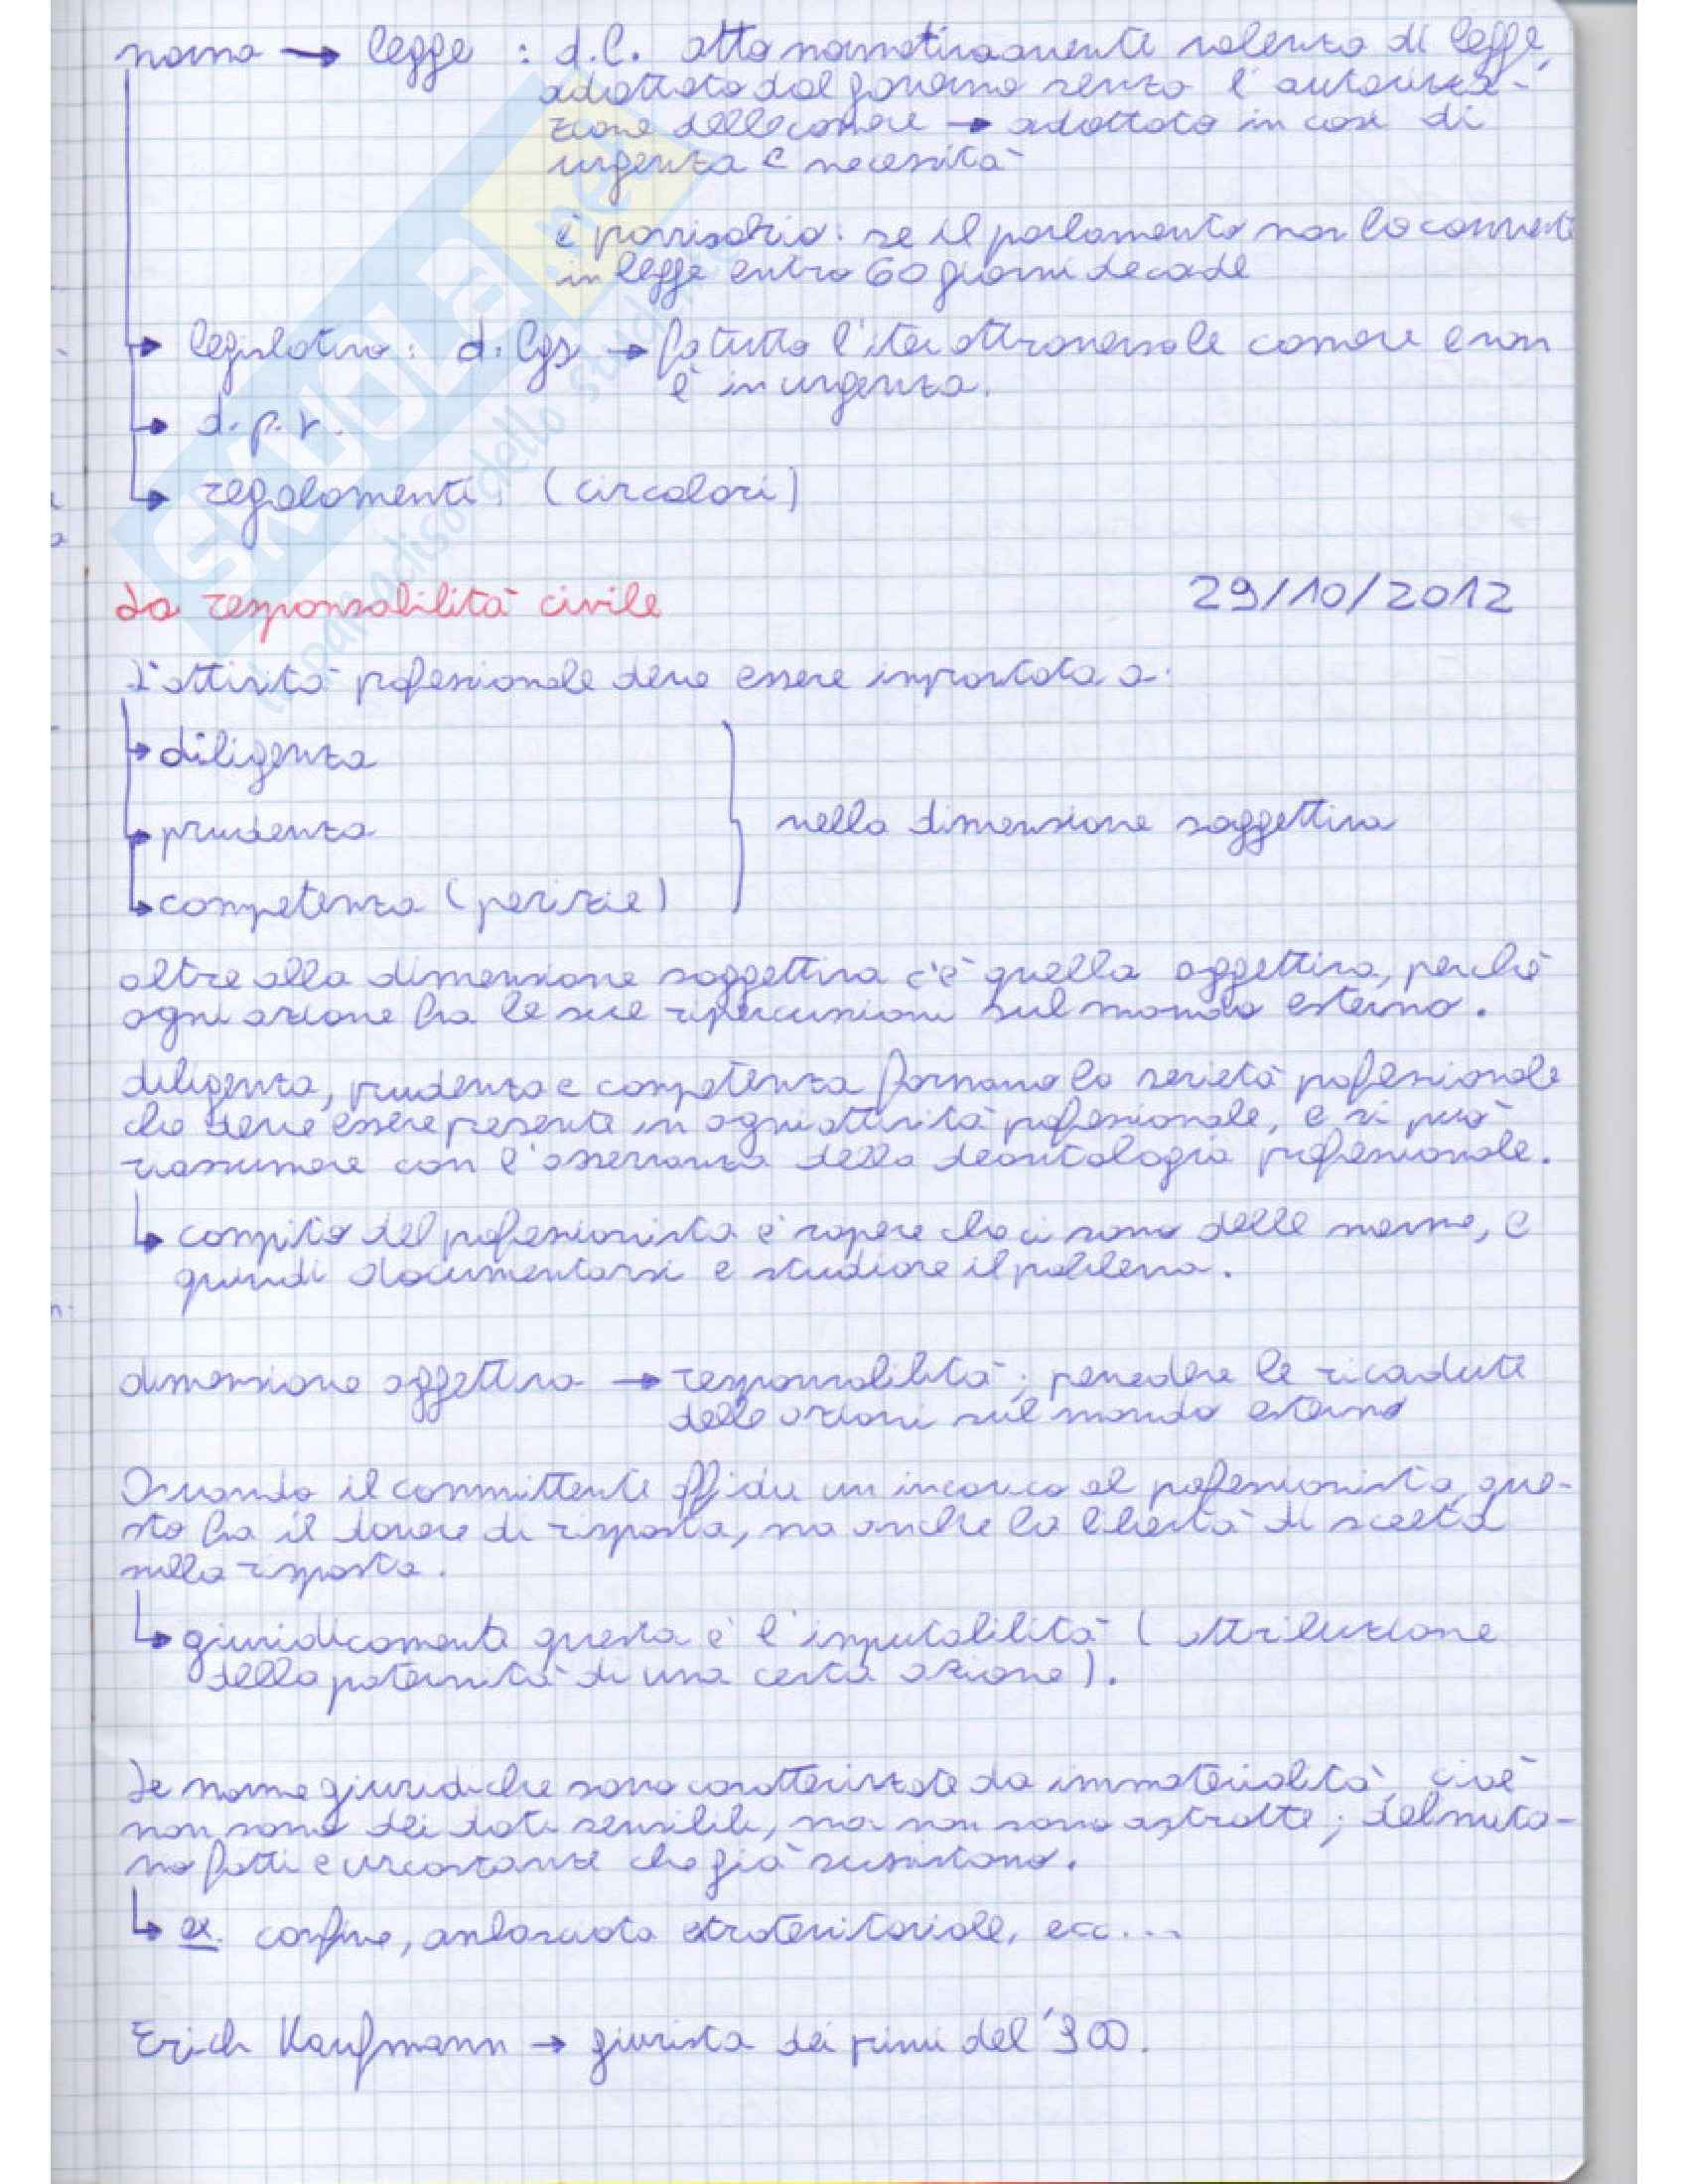 norma → legge : d.l. atto normativo avente valenza di legge,
adottato dal governo senza l'autorizza-
zione delle camere → adottato in casi di
urgenza e necessità
è provvisorio: se il parlamento non lo converte
in legge entro 60 giorni decade
→ legislativo: d.lgs → fa tutto l'iter attraverso le camere e non
è in urgenza.
→ d.p.r.
→ regolamenti (circolari)
La responsabilità civile 29/10/2012
L'attività professionale deve essere improntata a:
→ diligenza
→ prudenza
nella dimensione soggettiva
→ competenza (perizie)
oltre alla dimensione soggettiva c'è quella oggettiva, perché
ogni azione ha le sue ripercussioni sul mondo esterno.
diligenza, prudenza e competenza formano la serietà professionale
che deve essere presente in ogni attività professionale, e si può
riassumere con l'osservanza della deontologia professionale.
↳ compito del professionista è sapere che ci sono delle norme, e
quindi documentarsi e studiare il problema.
dimensione oggettiva → responsabilità; prevedere le ricadute
delle azioni sul mondo esterno
Quando il committente affida un incarico al professionista, que-
sto ha il dovere di risposta, ma anche la libertà di scelta
nella risposta.
↳ giuridicamente questa è l'imputabilità (attribuzione
della paternità di una certa azione).
Le norme giuridiche sono caratterizzate da immaterialità, cioè
non sono dei dati sensibili, ma non sono astratte;
fatti e circostanze che già sussistono.
↳ es. confine, ambasciata extraterritoriale, ecc...
Erich Kaufmann → giurista dei primi del '900.
SKUOLA.net
il paradiso dello studente